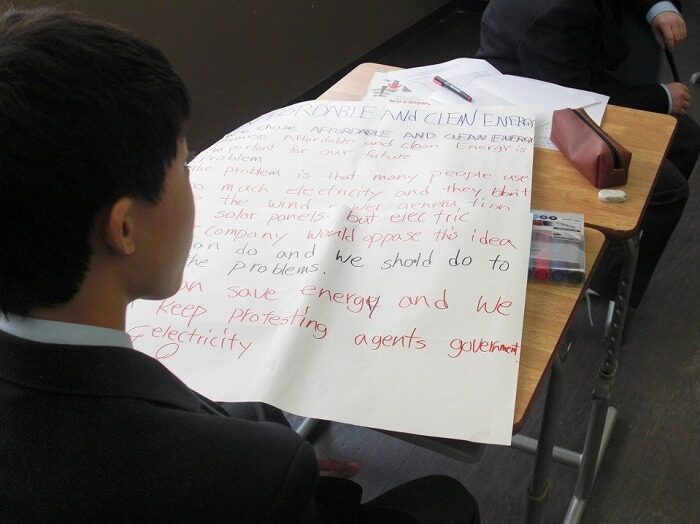 AFFORDABLE And CLEAN ENERGY
chose AFFORDABLE AND CLEAN ENERGY
Affordable and clean Energy is
important for our future
Problem
the problem is that many people use
much electricity and they don't
the wind power
solar panels. but electric
company would oppase this idea
can do and we should do to
the problems.
can save energy and we
keep protesting agents government
electricity